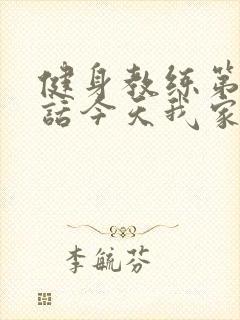 健身教练第
話今天我家
李毓芬